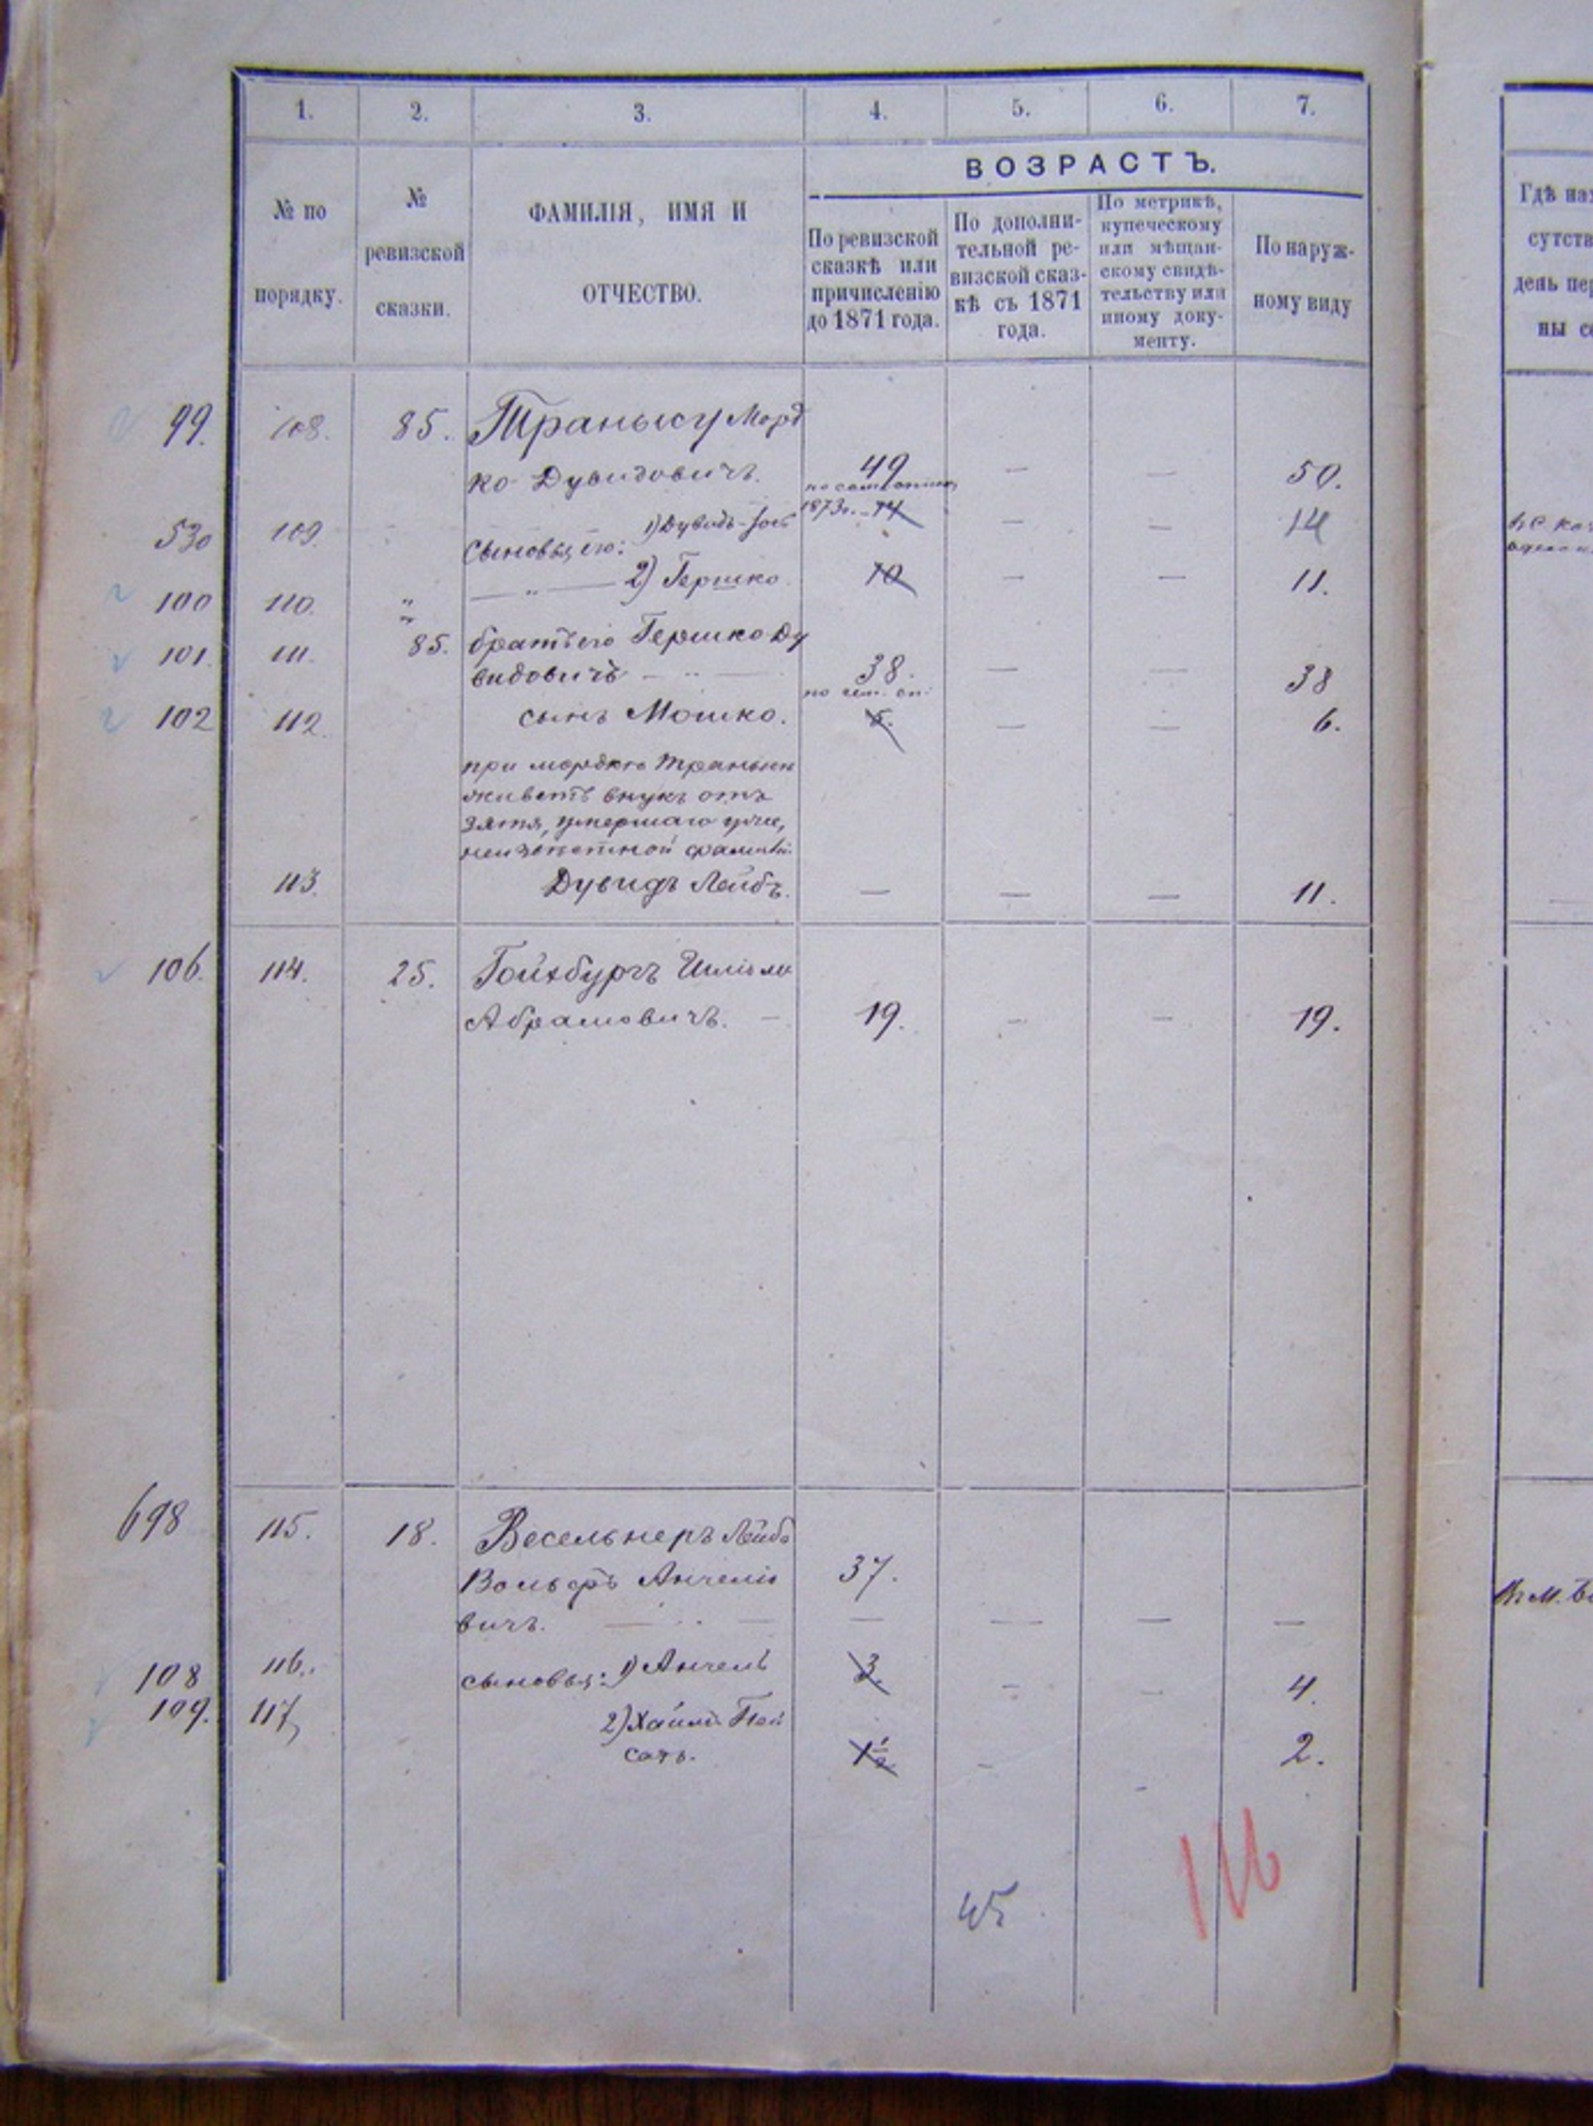 1. 2. 3. 4. 5. 6. 7.
ВОЗРАСТЪ.
№ по порядку.
№ ревизской сказки.
ФАМИЛІЯ, ИМЯ И ОТЧЕСТВО.
По ревизской сказкѣ или причисленію до 1871 года.
По дополнительной ревизской сказкѣ съ 1871 года.
По метрикѣ, купеческому или мѣщанскому свидѣтельству или иному документу.
По наружному виду
Гдѣ
99. 108. 85. Транысу Морд
ко Дувидовичъ. 49 — — 50.
1873г.
530 109. сыновья его: 1) Дувидъ 14 — — 14
100 110. " — " — 2) Гершко 10 — — 11.
101. 111. 85. братъ его Гершко Ду
видовичъ 38. — — 38
102 112. сынъ Мошко. 5. — — 6.
при Мордкѣ
живетъ внукъ отъ
зятя, умершаго уже,
неизвѣстной фамиліи
113. Дувидъ Лейбъ. — — — 11.
106. 114. 25. Гойхбургъ Шмілы
Абрамовичъ. — 19. — — 19.
698 115. 18. Весельнеръ Лейба
Вольфъ Анчеліо 37.
вичъ. — — — —
108 116. сыновья: 1) Анчель 3. — — 4.
109. 117, 2) Хаимъ Пей
сахъ. 1½ - - 2.
45
116